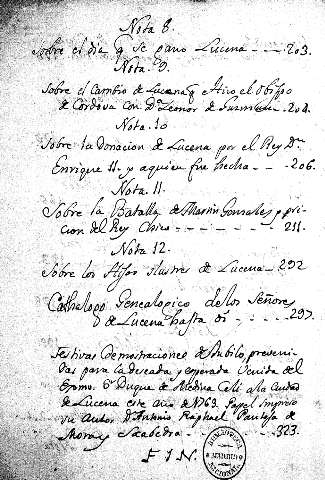 Nota 8.
Sobre el dia q se gano Lucena - - - 203.
Nota 9.
Sobre el Cambio de Lucena q hizo el Obispo
de Cordova con Dª Leonor de Guzman - 204.
Nota 10
Sobre la donacion de Lucena por el Rey Dn
Enrique 11. y aquien fue hecha - - 206.
Nota 11.
Sobre la Batalla de Martin Gonzales y pri-
cion del Rey Chico - - - - - - 211.
Nota 12.
Sobre los Hijos ilustres de Lucena - 292
Cathalogo Genealogico de los Señores
de Lucena hasta oi - - - - - 297.
Festivas demostraciones de Jubilo, preveni-
das para la deseada y esperada Venida del
Exmo. Sr Duque de Medina Celi a la Ciudad
de Lucena este año de 1763. Papel Impreso
su Autor Dn Antonio Raphael
de Mora y Saabedra - - - 323.
FIN.
BIBLIOTECA NACIONAL